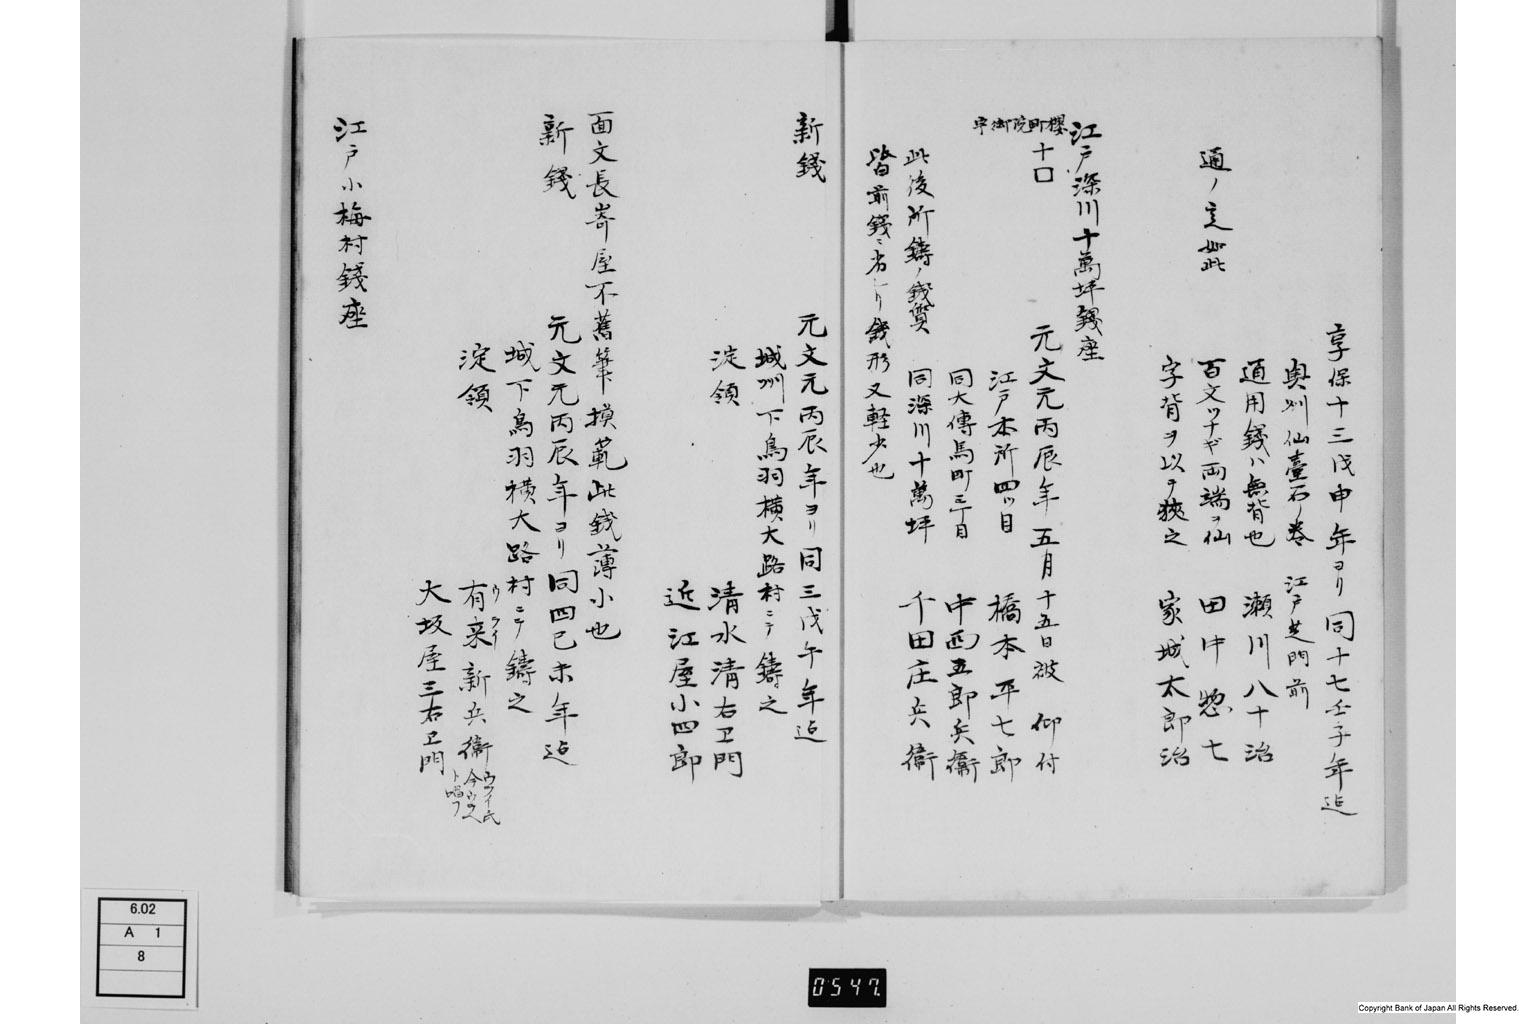 享保十三戊申年ヨリ同十七壬子年迠
奥州仙臺石ノ巻 江戸芝門前
通用銭ハ無背也 瀬川八十治
通ノ定如此 百文ツナギ両端ヲ仙 田中惣七
字背ヲ以テ狹之 家城太郎治
江戸深川十萬坪銭座
櫻町院御卑
十口 元文元丙辰年五月十五日被 仰付
江戸本所四ツ目 橋本平七郎
同大傳馬町三丁目 中西五郎兵衞
此後所鑄ノ銭質 同深川十萬坪 千田庄兵衞
皆前銭ニ劣レリ銭形又軽少也
新錢 元文元丙辰年ヨリ同三戊午年迠
城州下鳥羽横大路村ニテ鑄之
淀領 清水清右エ門
近江屋小四郎
面文長嵜屋不舊筆摸範此銭薄小也
新錢 元文元丙辰年ヨリ同四己未年迠
城下鳥羽横大路村ニテ鑄之
淀領 有来新兵衞
ウライ
大坂屋三右エ門
江戸小梅村錢座
6.02
A 1
8
0547.
Copyright Bank of Japan All Rights Reserved.